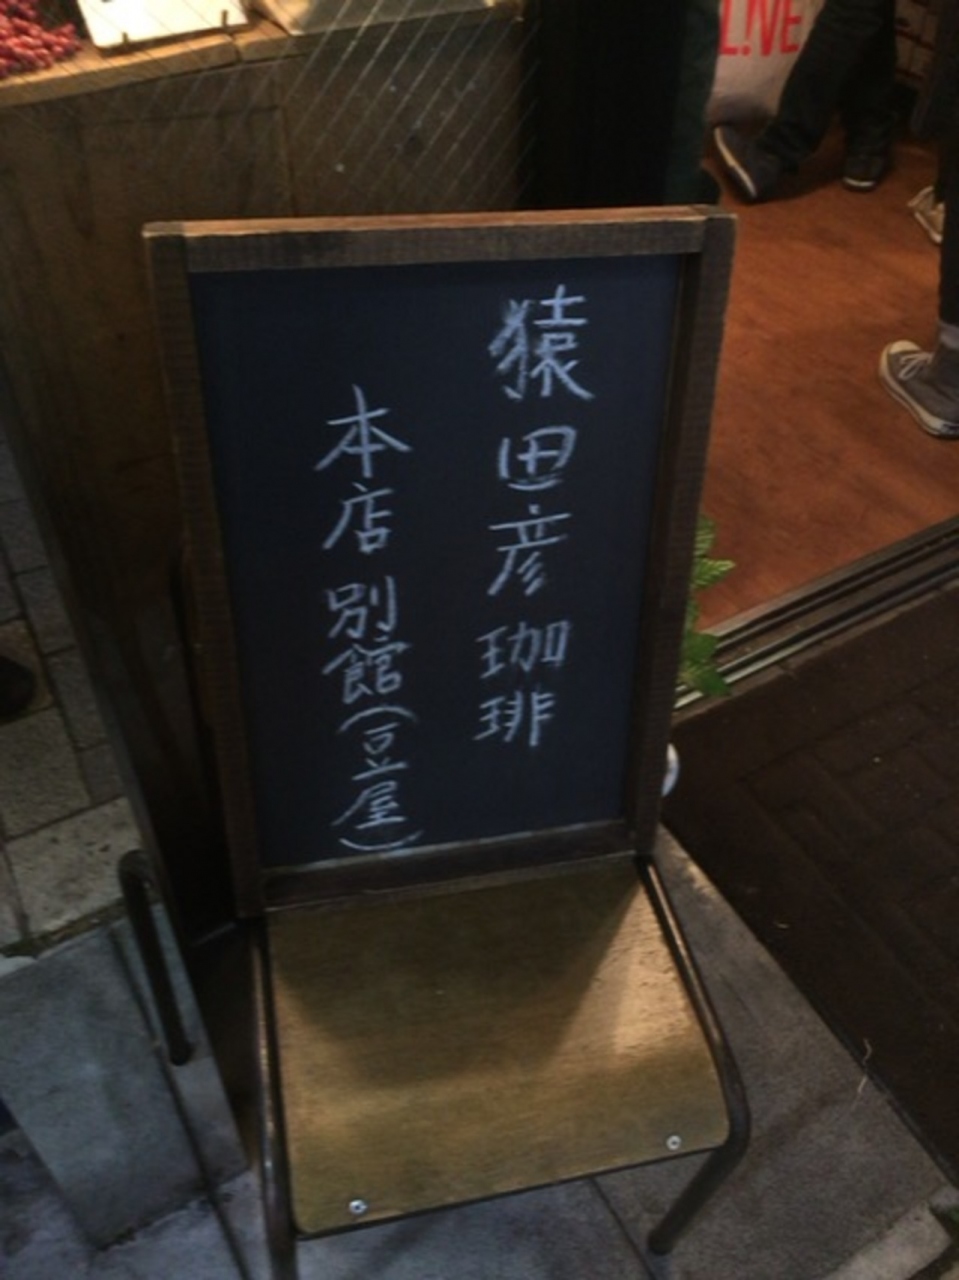 猿田彦珈琲
本店別館(豆屋)
L!VE